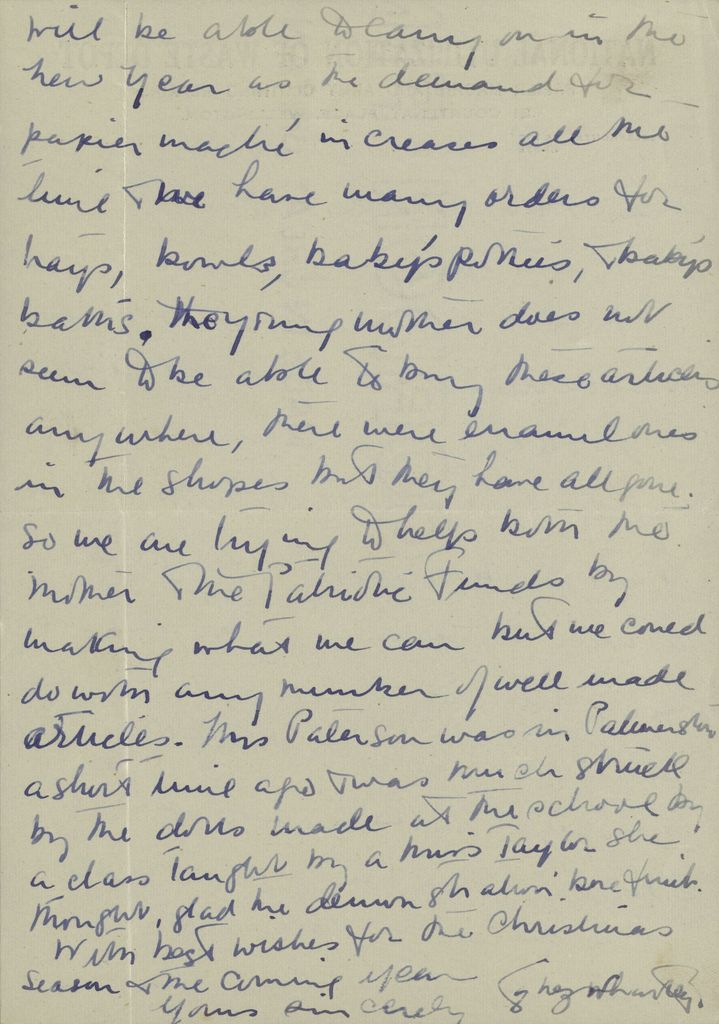 will be able to carry on in the
new year as the demand for
papier maché increases all the
time & we have many orders for
trays, bowls, baby's potties, & baby's
baths. The young mother does not
seem to be able to buy these articles
anywhere, there were enamel ones
in the shops but they have all gone.
So we are trying to help both the
mother & the Patriotic Funds by
making what we can but we could
do with any number of well made
articles. Mrs Paterson was in Palmerston
a short time ago & was much struck
by the dolls made at the school by
a class taught by a Miss Taylor she
thought, glad the demonstration bore fruit.
With best wishes for the Christmas
season & the coming year
Yours sincerely